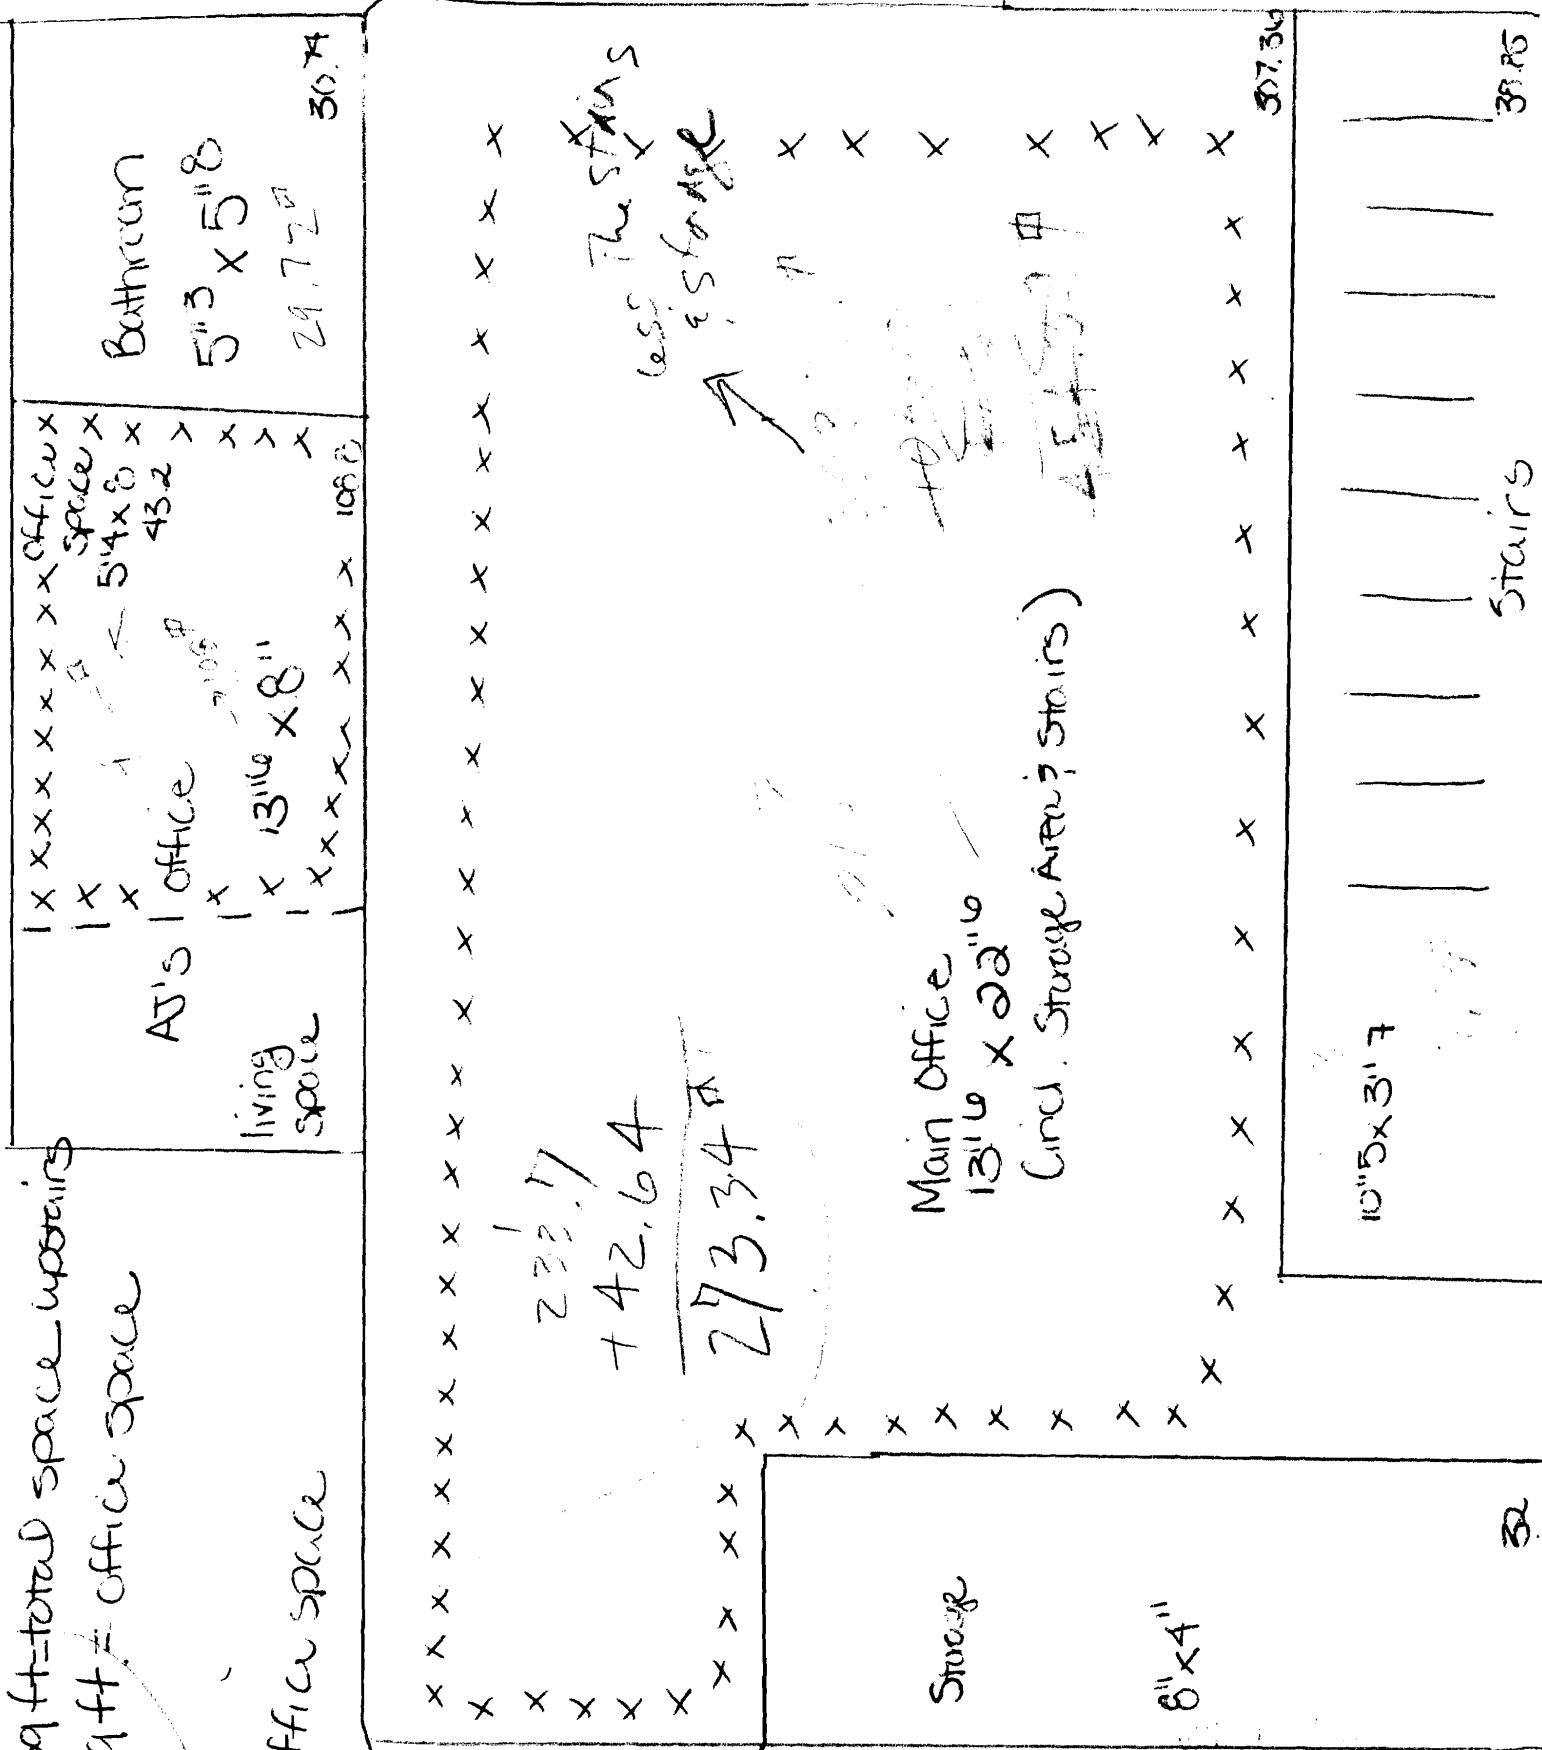 q ft=total space upstairs
q ft = office space
ffice space
living
space
AJ's
office
13"6 x 8"
108.0
office
space
5"4 x 8
43.2
Bathroom
5"3 x 5"8
29.72
30.74
less The stairs
& storage
233.7
+42.64
273.34
Main Office
13"6 x 22"6
(incl. Storage Area & Stairs)
307.36
Storage
8" x 4"
32
10"5 x 3"7
Stairs
38.85